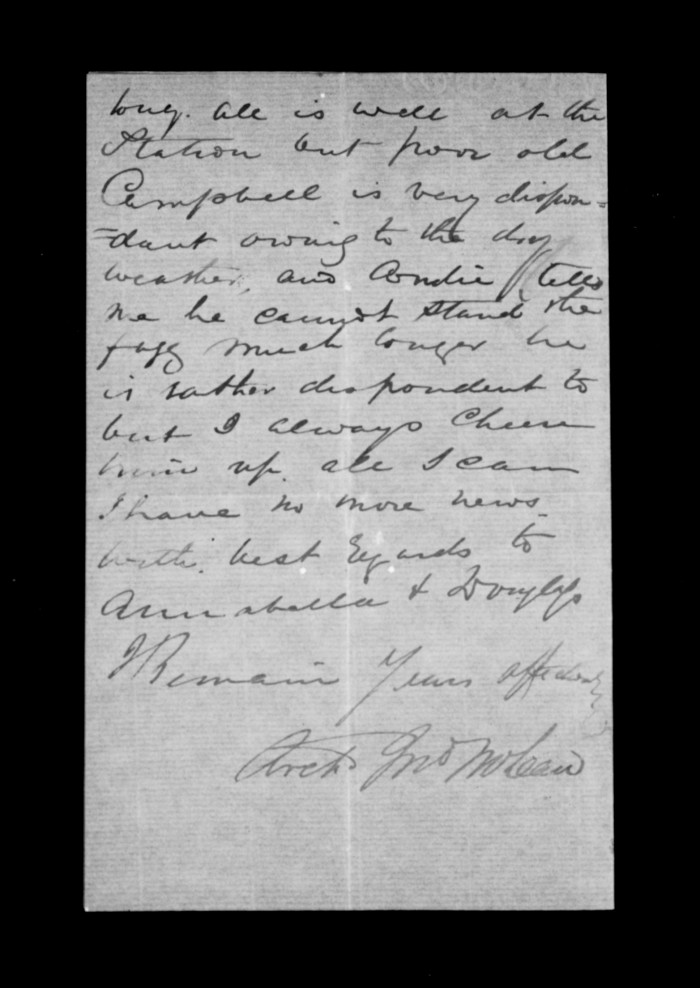 long. all is well at the
Station but poor old
Campbell is very dispon=
=dant owing to the dry
weather, and Condie tells
me he cannot stand the
fagg much longer he
is rather dispondent to
but I always cheer
him up all I can
I have no more news.
with best regards to
Annabella & Douglas
I Remain Yours affectionately
Archd Jno McLean